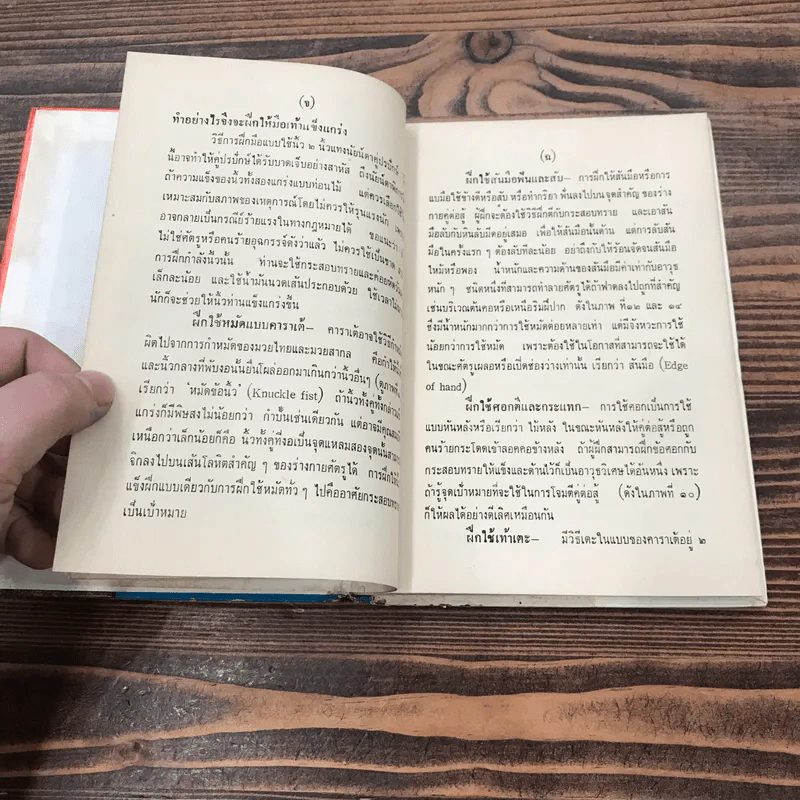 (จ)
ทำอย่างไรจึงจะฝึกให้มือเท้าแข็งแกร่ง
วิธีการฝึกมือแบบใช้นิ้ว ๒ นิ้วแทงนัยน์ตาคู่ปรปักษ์
นี้อาจทำให้คู่ปรปักษ์ได้รับบาดเจ็บอย่างสาหัส ถึงนัยน์ตา
ถ้าความแข็งของนิ้วทั้งสองแกร่งแบบท่อนไม้ แต่ควรเลือกใช้
เหมาะสมกับสภาพของเหตุการณ์โดยไม่ควรให้รุนแรงนัก
อาจกลายเป็นกรณีย์ร้ายแรงในทางกฎหมายได้ ขอแนะ
ไม่ใช่ศัตรูหรือคนร้ายอุฉกรรจ์ดังว่าแล้ว ไม่ควรใช้เป็น
การฝึกกำลังนิ้วนั้น ท่านจะใช้กระสอบทรายและค่อย
เล็กละน้อย และใช้น้ำมันนวดเส้นประกอบด้วย ใช้เวลาไม่
นักก็จะช่วยให้นิ้วท่านแข็งแกร่งขึ้น
ฝึกใช้หมัดแบบคาราเต้— คาราเต้อาจใช้วิธีกำ
ผิดไปจากการกำหมัดของมวยไทยและมวยสากล คือทำให้
และนิ้วกลางที่พับงอนั้นยื่นโผล่ออกมาเกินกว่านิ้วอื่นๆ
เรียกว่า 'หมัดข้อนิ้ว' (Knuckle fist) ถ้านิ้วทั้งคู่ทั้งกล่าว
แกร่งก็มีพิษสงไม่น้อยกว่า กำปั้นเช่นเดียวกัน แต่อาจมีคุณ
เหนือกว่าเล็กน้อยก็คือ นิ้วทั้งคู่ที่งอเป็นจุดแหลมสองจุดนั้น
จิกลงไปบนเส้นโลหิตสำคัญ ๆ ของร่างกายศัตรูได้ การฝึกให้
แข็งฝึกแบบเดียวกับการฝึกใช้หมัดทั่ว ๆ ไปคืออาศัยกระสอบ
เป็นเป้าหมาย
(ฉ)
ฝึกใช้สันมือฟันและสับ— การฝึกให้สันมือหรือการ
แบมือใช้ข้างตีหรือสับ หรือทำกริยา ฟันลงไปบนจุดสำคัญ ของร่าง
กายคู่ต่อสู้ ผู้ฝึกจะต้องใช้วิธีฝึกตีกับกระสอบทราย และเอาสัน
มือลับกับหินลับมีดอยู่เสมอ เพื่อให้สันมือนั้นด้าน แต่การลับสัน
มือในครั้งแรก ๆ ต้องลับทีละน้อย อย่าถึงกับให้ร้อนจัดจนสันมือ
ไหม้หรือพอง น้ำหนักและความด้านของสันมือมีค่าเท่ากับอาวุธ
หนัก ๆ ชนิดหนึ่งที่สามารถทำลายศัตรูได้ถ้าฟาดลงไปถูกที่สำคัญ
เช่นบริเวณต้นคอหรือเหนือริมฝีปาก ดังในภาพที่ ๑๒ และ ๑๔
ซึ่งมีน้ำหนักมากกว่าการใช้หมัดต่อยหลายเท่า แต่มีจังหวะการใช้
น้อยกว่าการใช้หมัด เพราะต้องใช้ในโอกาสที่สามารถจะใช้ได้
ในขณะศัตรูเผลอหรือเปิดช่องว่างเท่านั้น เรียกว่า สันมือ (Edge
of hand)
ฝึกใช้ศอกตีและกระแทก— การใช้ศอกเป็นการใช้
แบบหันหลังหรือเรียกว่า ไม้หลัง ในขณะหันหลังให้คู่ต่อสู้หรือถูก
คนร้ายกระโดดเข้าลอคคอข้างหลัง ถ้าผู้ฝึกสามารถฝึกข้อศอกกับ
กระสอบทรายให้แข็งและด้านไว้ก็เป็นอาวุธวิเศษได้อันหนึ่ง เพราะ
ถ้ารู้จุดเป้าหมายที่จะใช้ในการโจมตีคู่ต่อสู้ (ดังในภาพที่ ๑๐)
ก็ให้ผลได้อย่างดีเลิศเหมือนกัน
ฝึกใช้เท้าเตะ— มีวิธีเตะในแบบของคาราเต้อยู่ ๒